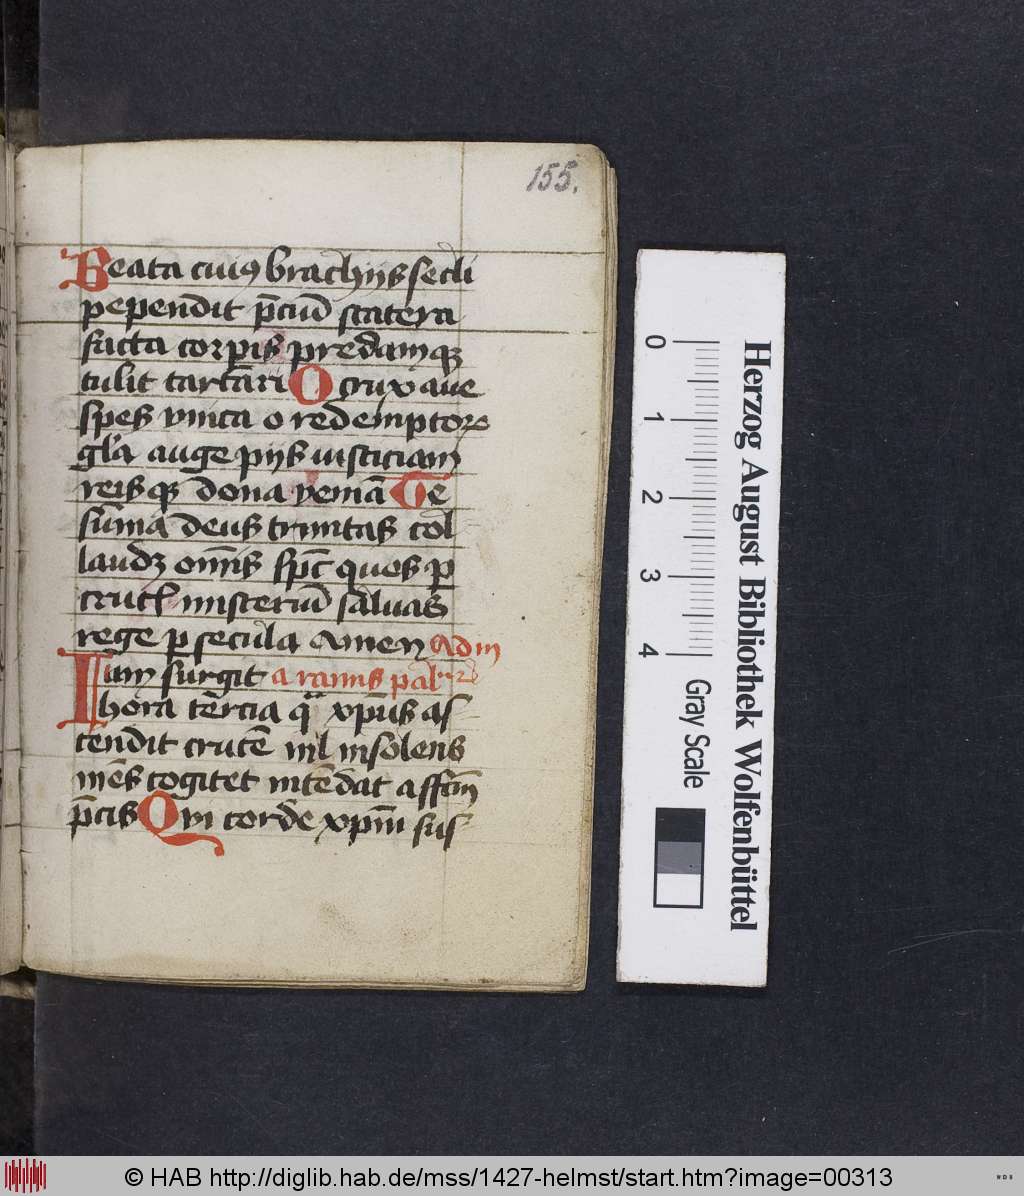 155.
Beata cuiꝰ brachijs secli
pependit p̄ciū statera
facta corꝑis predamqꝫ
tulit tartari O crux aue
spes vnica o redemptor
gl'a auge pijs iusticiam
reisqꝫ dona veniā Te
su̅ma deus trinitas col
laudꝫ om̄is sp̄c quos ꝑ
crucꝭ misteriū saluas
rege ꝑ secula Amen Ad
Iam surgit a ramis
hora tercia q̊ xp̄us as
cendit crucē nil insolens
mēs cogitet intēdat affcm̄
p̄cis Qui corde xp̄m sus
0 1 2 3 4
Gray Scale
Herzog August Bibliothek Wolfenbüttel
© HAB http://diglib.hab.de/mss/1427-helmst/start.htm?image=00313